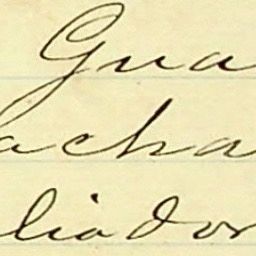 Gua
acha
liador